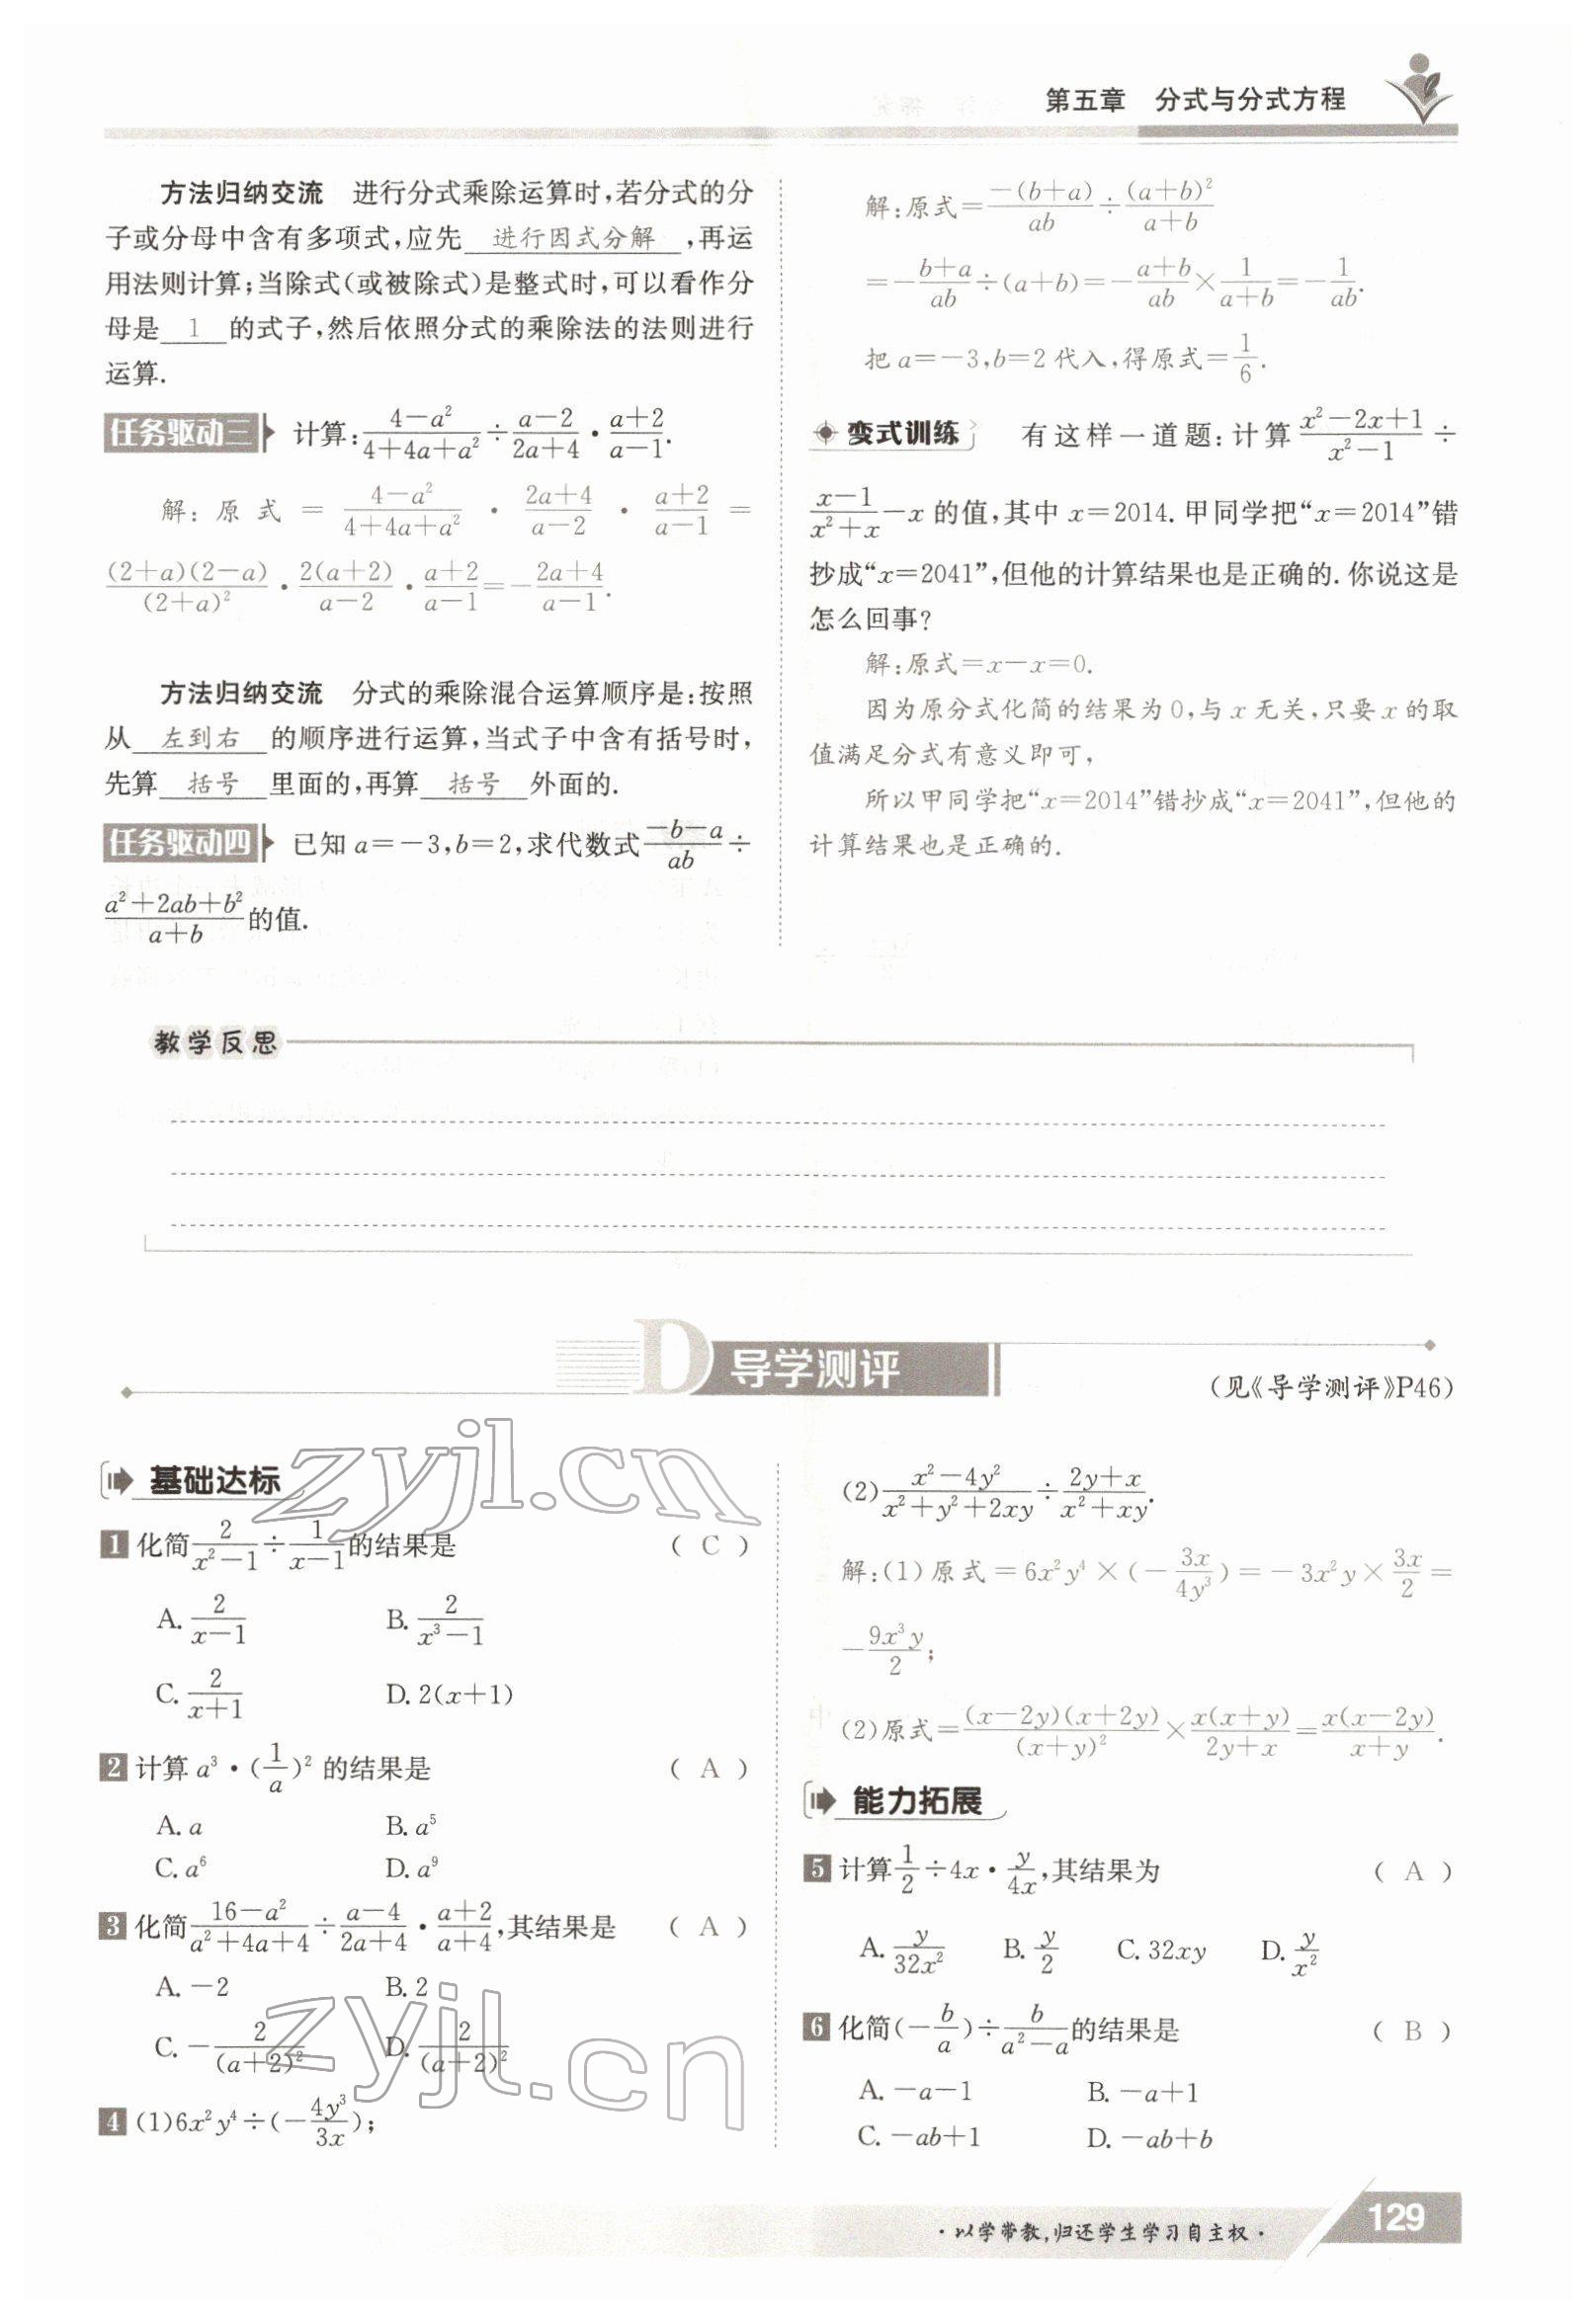 第五章 分式与分式方程
方法归纳交流 进行分式乘除运算时,若分式的分
子或分母中含有多项式,应先 进行因式分解 ,再运
用法则计算;当除式(或被除式)是整式时,可以看作分
母是 1 的式子,然后依照分式的乘除法的法则进行
运算.
任务驱动三 计算:(4-a²)/(4+4a+a²)÷(a-2)/(2a+4)·(a+2)/(a-1).
解:原式=(4-a²)/(4+4a+a²)·(2a+4)/(a-2)·(a+2)/(a-1)=
(2+a)(2-a)/(2+a)²·2(a+2)/(a-2)·(a+2)/(a-1)=-(2a+4)/(a-1).
方法归纳交流 分式的乘除混合运算顺序是:按照
从 左到右 的顺序进行运算,当式子中含有括号时,
先算 括号 里面的,再算 括号 外面的.
任务驱动四 已知a=-3,b=2,求代数式(-b-a)/ab÷
(a²+2ab+b²)/(a+b)的值.
解:原式=-(b+a)/ab÷(a+b)²/(a+b)
=-(b+a)/ab÷(a+b)=-(a+b)/ab×1/(a+b)=-1/ab.
把a=-3,b=2代入,得原式=1/6.
变式训练 有这样一道题:计算(x²-2x+1)/(x²-1)÷
(x-1)/(x²+x)-x的值,其中x=2014.甲同学把“x=2014”错
抄成“x=2041”,但他的计算结果也是正确的.你说这是
怎么回事?
解:原式=x-x=0.
因为原分式化简的结果为0,与x无关,只要x的取
值满足分式有意义即可,
所以甲同学把“x=2014”错抄成“x=2041”,但他的
计算结果也是正确的.
教学反思
D 导学测评
(见《导学测评》P46)
基础达标
1 化简2/(x²-1)÷1/(x-1)的结果是 ( C )
A. 2/(x-1) B. 2/(x³-1)
C. 2/(x+1) D. 2(x+1)
2 计算a³·(1/a)²的结果是 ( A )
A. a B. a⁵
C. a⁶ D. a⁹
3 化简(16-a²)/(a²+4a+4)÷(a-4)/(2a+4)·(a+2)/(a+4),其结果是 ( A )
A. -2 B. 2
C. -2/(a+2)² D. 2/(a+2)²
4 (1)6x²y⁴÷(-4y³/3x);
(2)(x²-4y²)/(x²+y²+2xy)÷(2y+x)/(x²+xy).
解:(1)原式=6x²y⁴×(-3x/4y³)=-3x²y×3x/2=
-9x³y/2;
(2)原式=(x-2y)(x+2y)/(x+y)²×x(x+y)/(2y+x)=x(x-2y)/(x+y).
能力拓展
5 计算1/2÷4x·y/4x,其结果为 ( A )
A. y/32x² B. y/2 C. 32xy D. y/x²
6 化简(-b/a)÷b/(a²-a)的结果是 ( B )
A. -a-1 B. -a+1
C. -ab+1 D. -ab+b
·以学带教,归还学生学习自主权·
129
zyjl.cn
zyjl.cn